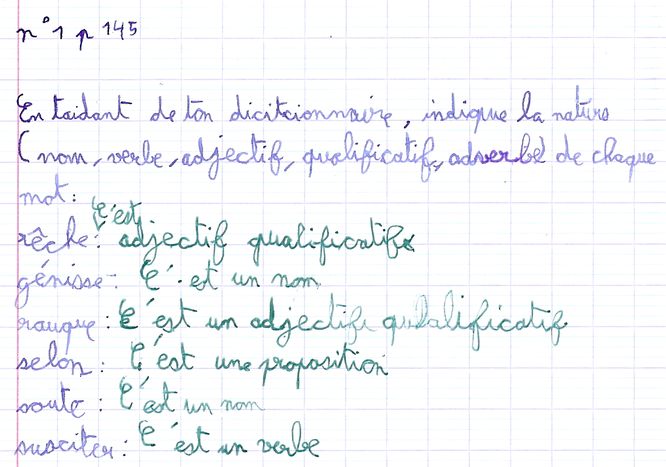 n°1 p 145
En taidant de ton dicitcionnaire, indique la nature
( nom, verbe, adjectif, qualificatif, adverbe) de chaque
mot :
c'est
rêche : adjectif qualificatif
génisse : C'est un nom
rauque : C'est un adjectif qualificatif
selon : C'est une proposition
soute : C'est un nom
susciter : C'est un verbe